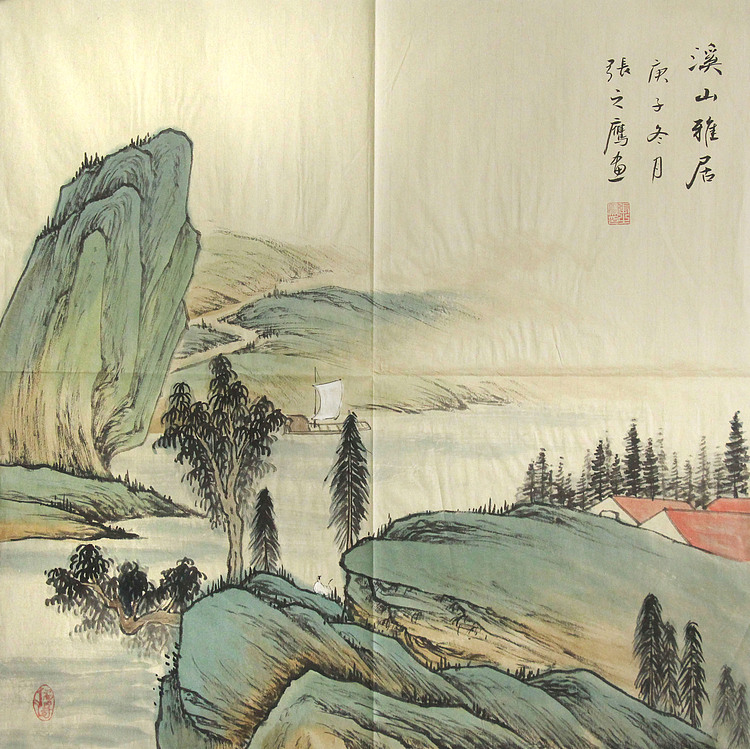 溪山雅居
庚子冬月
張之鷹畫